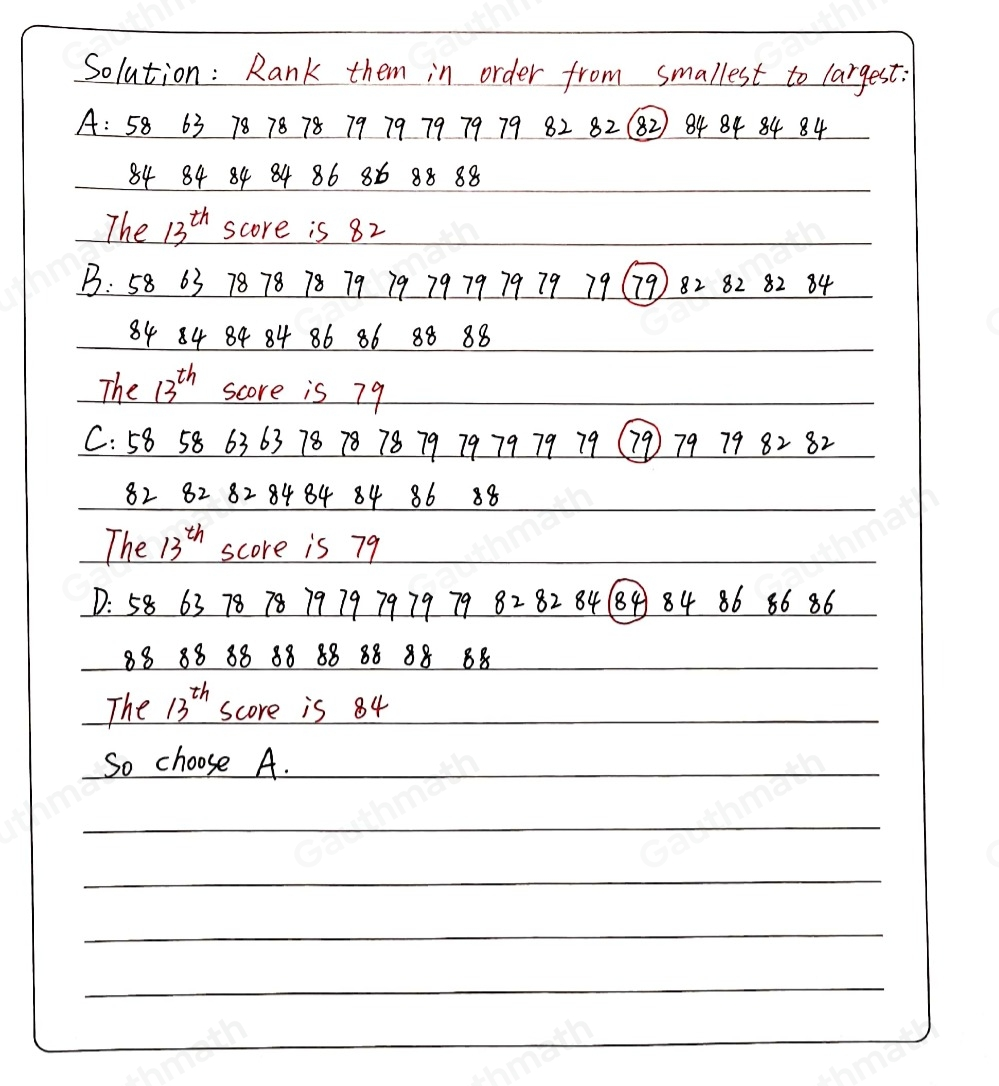 Solution: Rank them in order from smallest to largest:
A: 58 63 78 78 78 79 79 79 79 79 82 82 82 84 84 84 84
84 84 84 84 86 86 88 88
The 13th score is 82
B: 58 63 78 78 78 79 79 79 79 79 79 79 79 82 82 82 84
84 84 84 84 86 86 88 88
The 13th score is 79
C: 58 58 63 63 78 78 78 79 79 79 79 79 79 79 79 82 82
82 82 82 84 84 84 86 88
The 13th score is 79
D: 58 63 78 78 79 79 79 79 79 82 82 84 84 84 86 86 86
88 88 88 88 88 88 88 88
The 13th score is 84
So choose A.